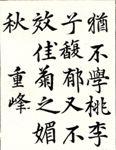 猶不學桃李
子馥郁又不
效佳菊之媚
秋 重峰